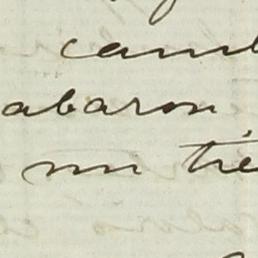 camb
abaron
un tie